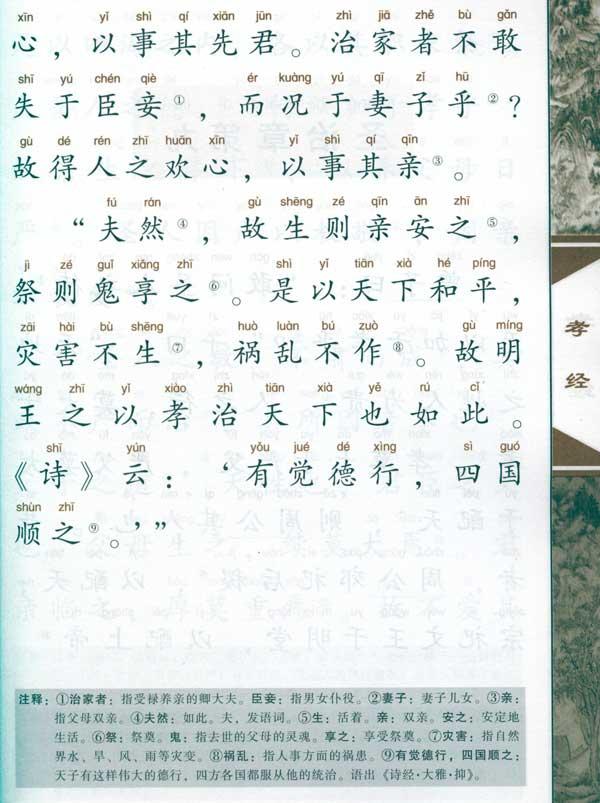 xīn yǐ shì qí xiān jūn zhì jiā zhě bù gǎn
心，以事其先君。治家者不敢
shī yú chén qiè ér kuàng yú qī zǐ hū
失于臣妾①，而况于妻子乎②？
gù dé rén zhī huān xīn yǐ shì qí qīn
故得人之欢心，以事其亲③。
fú rán gù shēng zé qīn ān zhī
“夫然④，故生则亲安之⑤，
jì zé guǐ xiǎng zhī shì yǐ tiān xià hé píng
祭则鬼享之⑥。是以天下和平，
zāi hài bù shēng huò luàn bú zuò gù míng
灾害不生⑦，祸乱不作⑧。故明
wáng zhī yǐ xiào zhì tiān xià yě rú cǐ
王之以孝治天下也如此。
shī yún yǒu jué dé xìng sì guó
《诗》云：‘有觉德行，四国
shùn zhī
顺之⑨。’”
注释：①治家者：指受禄养亲的卿大夫。臣妾：指男女仆役。②妻子：妻子儿女。③亲：
指父母双亲。④夫然：如此。夫，发语词。⑤生：活着。亲：双亲。安之：安定地
生活。⑥祭：祭奠。鬼：指去世的父母的灵魂。享之：享受祭奠。⑦灾害：指自然
界水、旱、风、雨等灾变。⑧祸乱：指人事方面的祸患。⑨有觉德行，四国顺之：
天子有这样伟大的德行，四方各国都服从他的统治。语出《诗经·大雅·抑》。
孝经